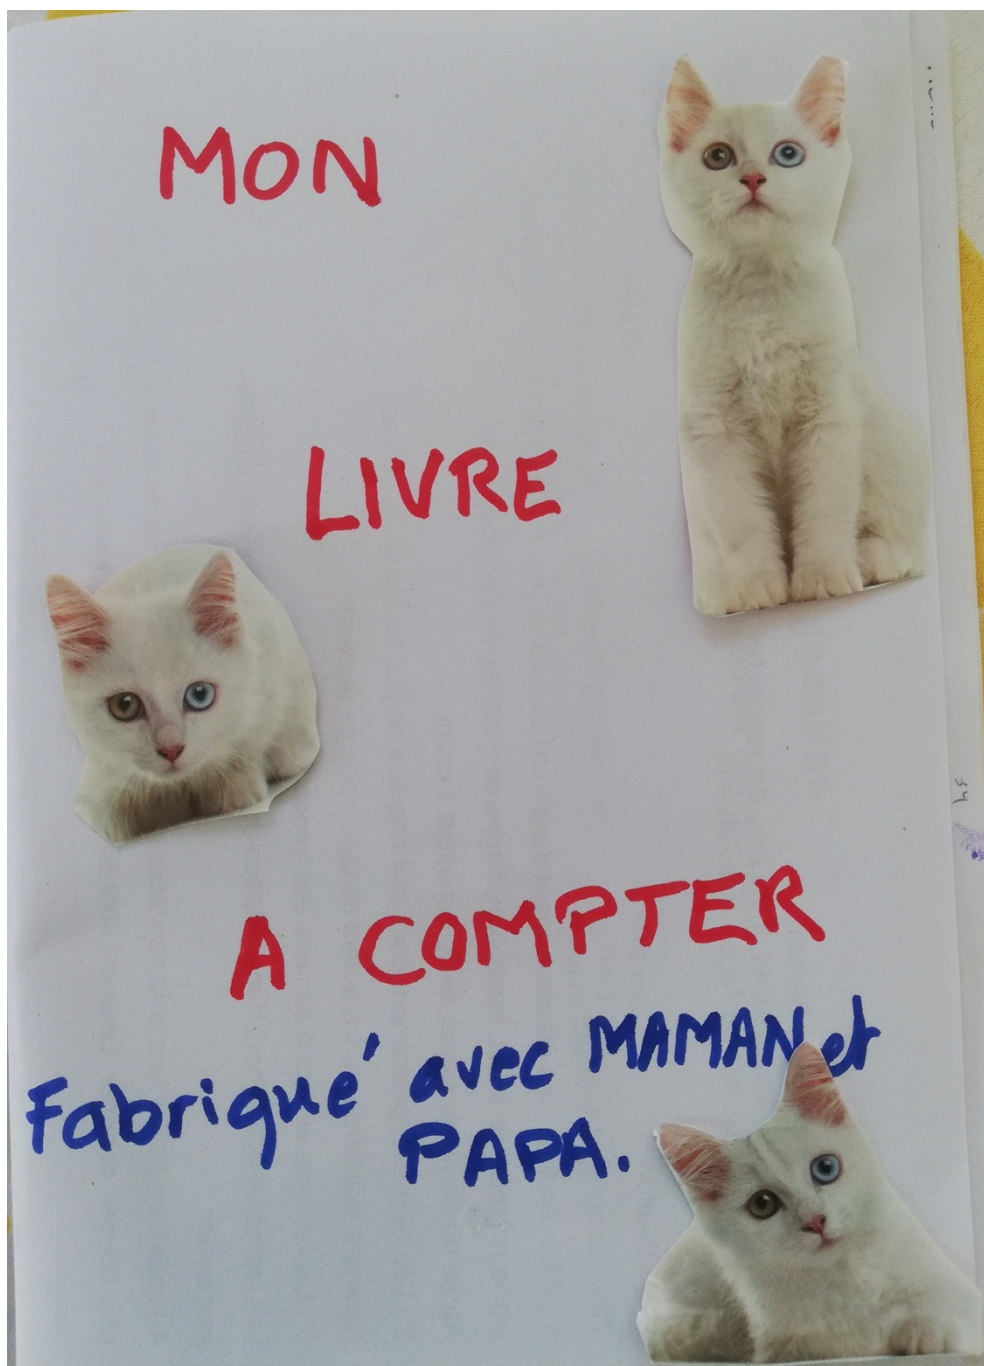 MON
LIVRE
A COMPTER
Fabriqué avec MAMAN et
PAPA.